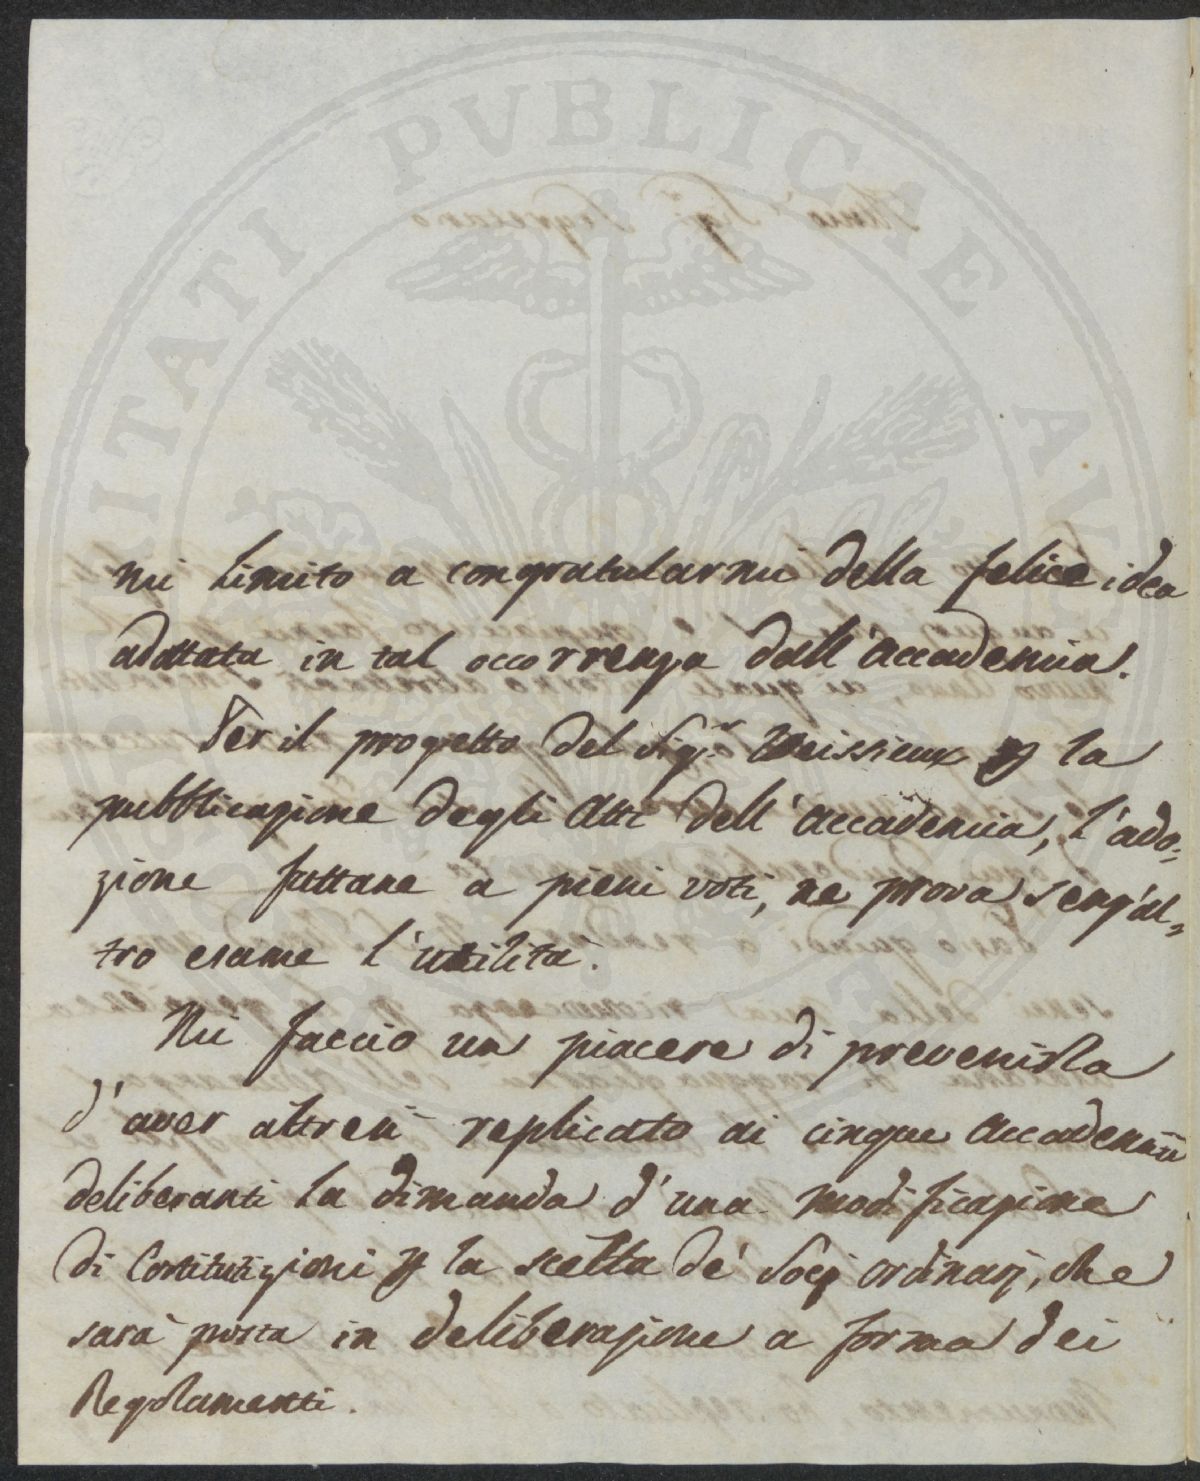 PUBLICAE
mi limito a congratularmi della felice idea
adottata in tal occorrenza dall'Accademia.
Per il progetto del Sig.r Vieissieux p la
pubblicazione degli Atti dell'Accademia, l'ado=
zione fattane a pieni voti, ne prova senz'al=
tro esame l'utilità.
Mi faccio un piacere di prevenirla
d'aver altresì replicato ai cinque Accademici
deliberanti la dimanda d'una modificazione
di Costituzioni p la scelta de' Socj ordinarj, che
sarà posta in deliberazione a forma dei
Regolamenti.